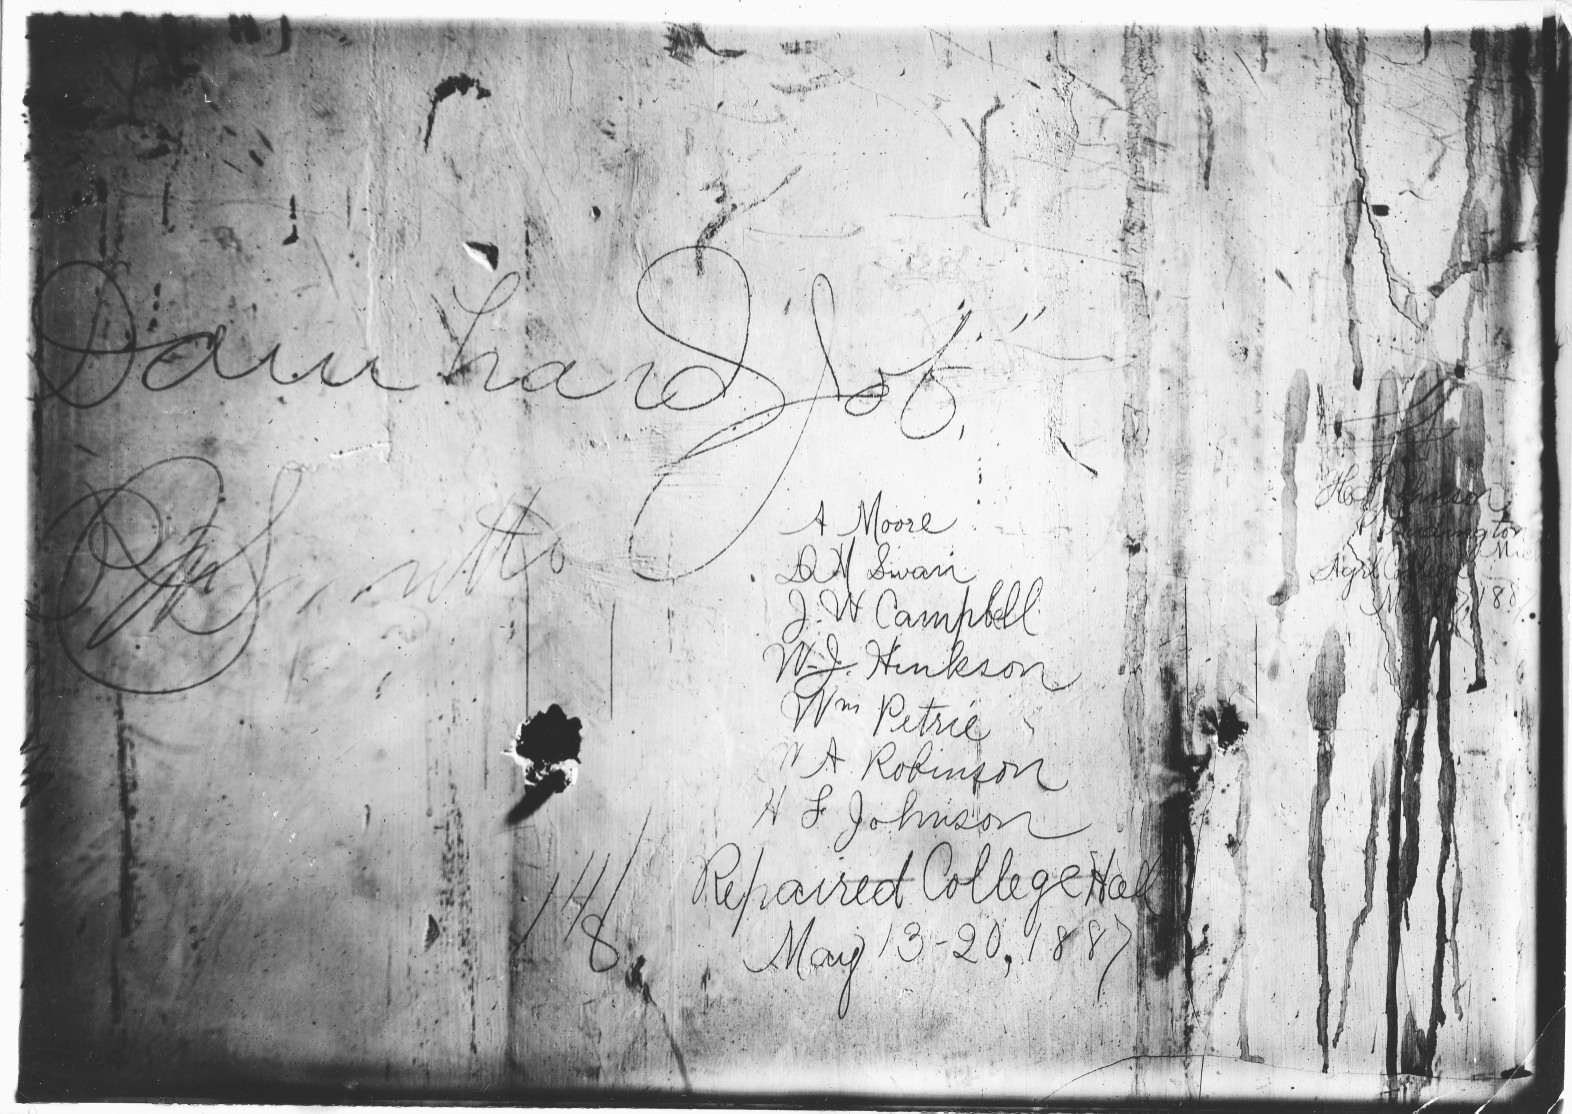 Dam hard Job"
Smith
A Moore
D H Swan
J. W Campbell
W. J. Hinkson
Wm Petrie
W A Robinson
H F Johnson
Repaired College Hall
May 13-20, 1887
148
Johnson
Agrl College Mich
187